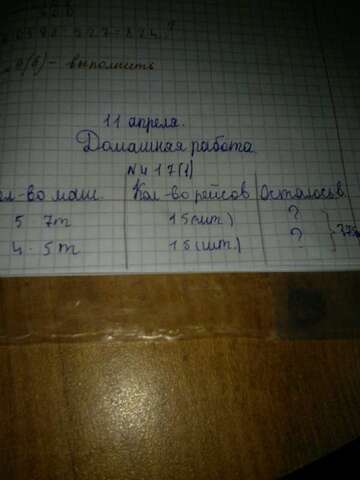 б(б)- выполнить
11 апреля.
Домашная работа
N417(1)
л-во маш. Кол-во рейсов Осталось в
5 7т 15(шт) ?
4 5т 15(шт.) ?